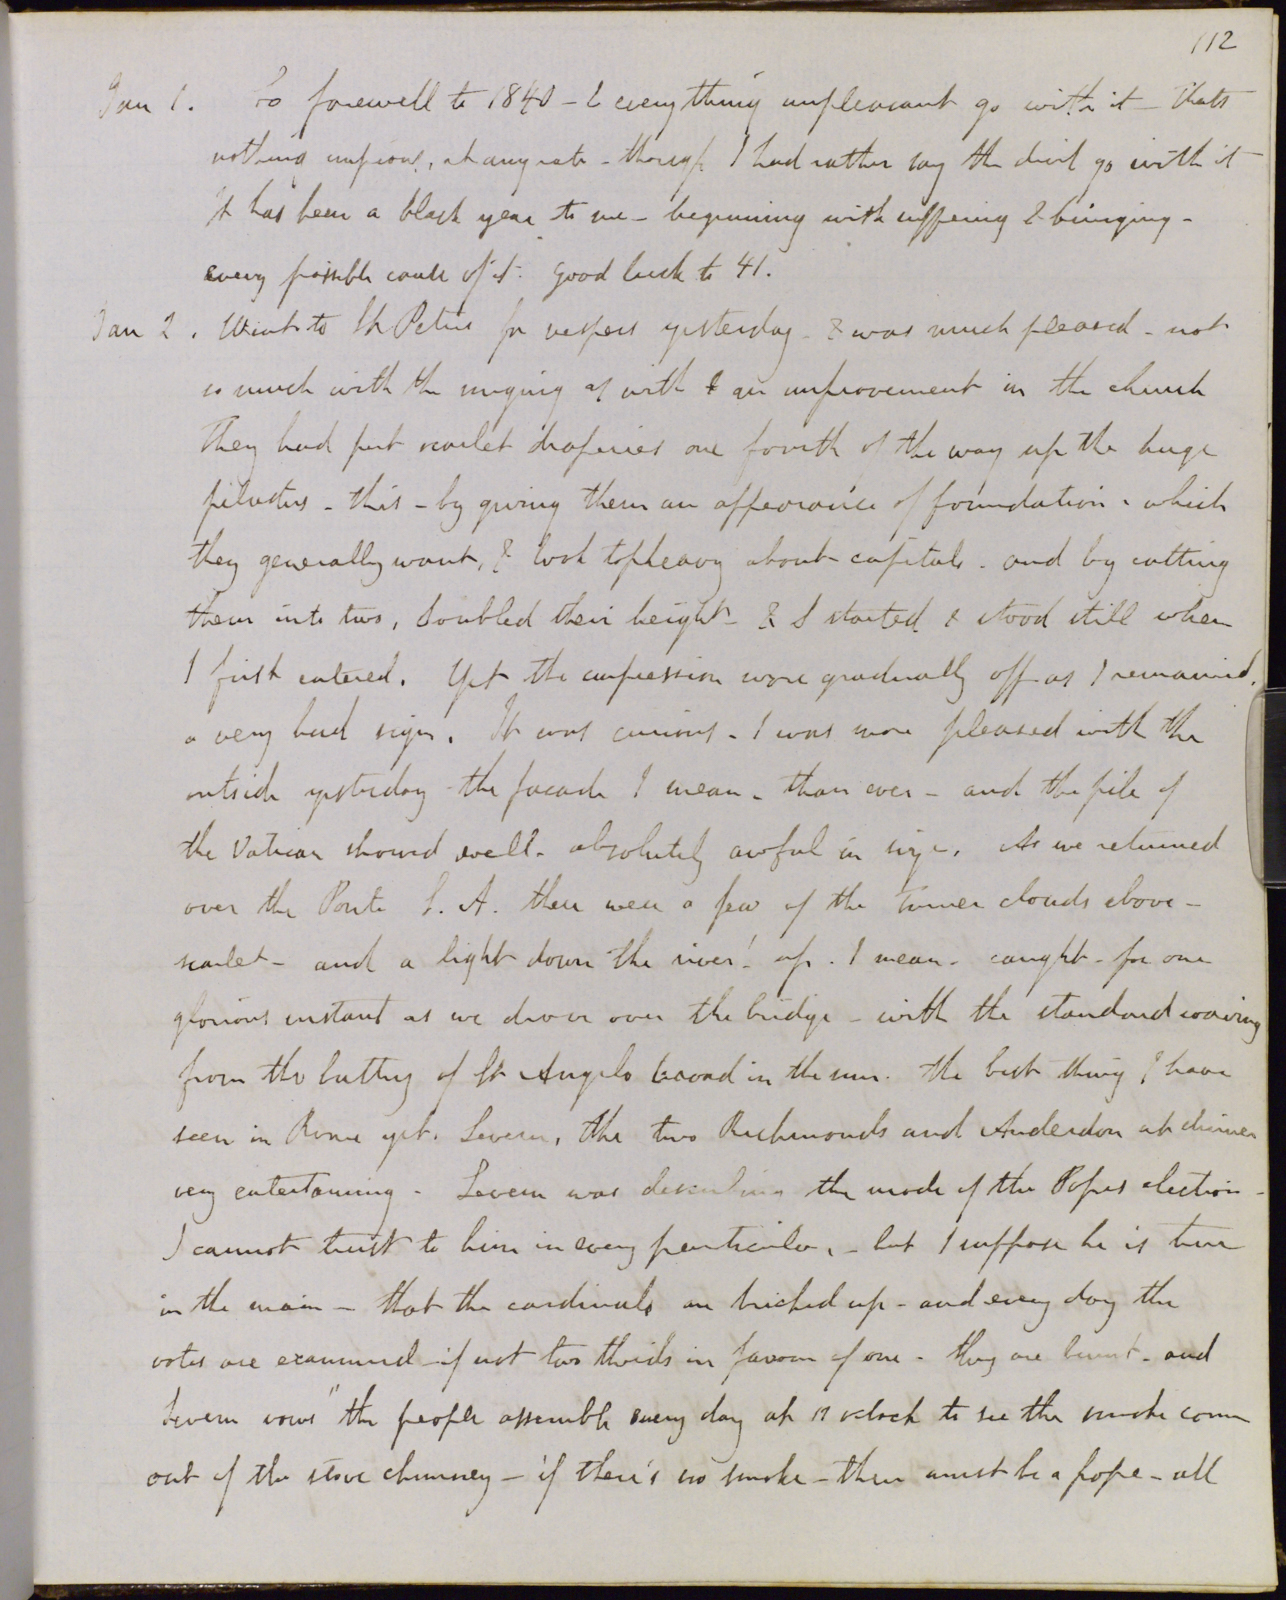 112
Jan 1. So farewell to 1840 - & everything unpleasant go with it - thats
nothing impious, at any rate - though I had rather say the devil go with it
It has been a black year to me - beginning with suffering & bringing -
every possible cause of it. Good luck to 41.
Jan 2. Went to St Peters for vespers yesterday - & was much pleased - not
so much with the singing as with an improvement in the church
They had put scarlet draperies one fourth of the way up the huge
pilasters - this - by giving them an appearance of foundation - which
they generally want, & look topheavy about capitals - and by cutting
them into two, doubled their height - & I started & stood still when
I first entered. Yet the impression wore gradually off as I remained,
a very bad sign. It was curious - I was more pleased with the
outside yesterday - the facade I mean - than ever - and the pile of
the Vatican showed well - absolutely awful in size. As we returned
over the Ponte S. A. there were a few of the Turner clouds above -
scarlet - and a light down the river! up - I mean - caught - for one
glorious instant as we drove over the bridge - with the standard waving
from the buttress of St Angelo in the sun. the best thing I have
seen in Rome yet. Severn, the two Richmonds and Anderdon at dinner
very entertaining - Severn was describing the mode of the Popes election -
I cannot trust to him in every particular, - but I suppose he is true
in the main - that the cardinals are bricked up - and every day the
votes are examined - if not two thirds in favour of one - they are burnt - and
Severn vows "the people assemble every day at 12 oclock to see the smoke come
out of the stove chimney - if there's no smoke - there must be a pope - all